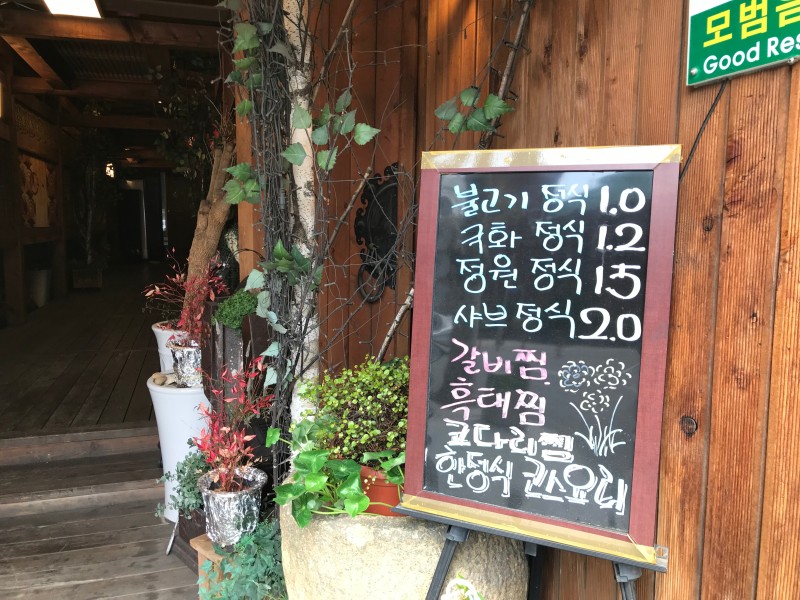 모범음
Good Res
불고기 정식 1.0
국화 정식 1.2
정원 정식 1.5
샤브 정식 2.0
갈비찜
흑태찜
코다리찜
한정식 코스요리